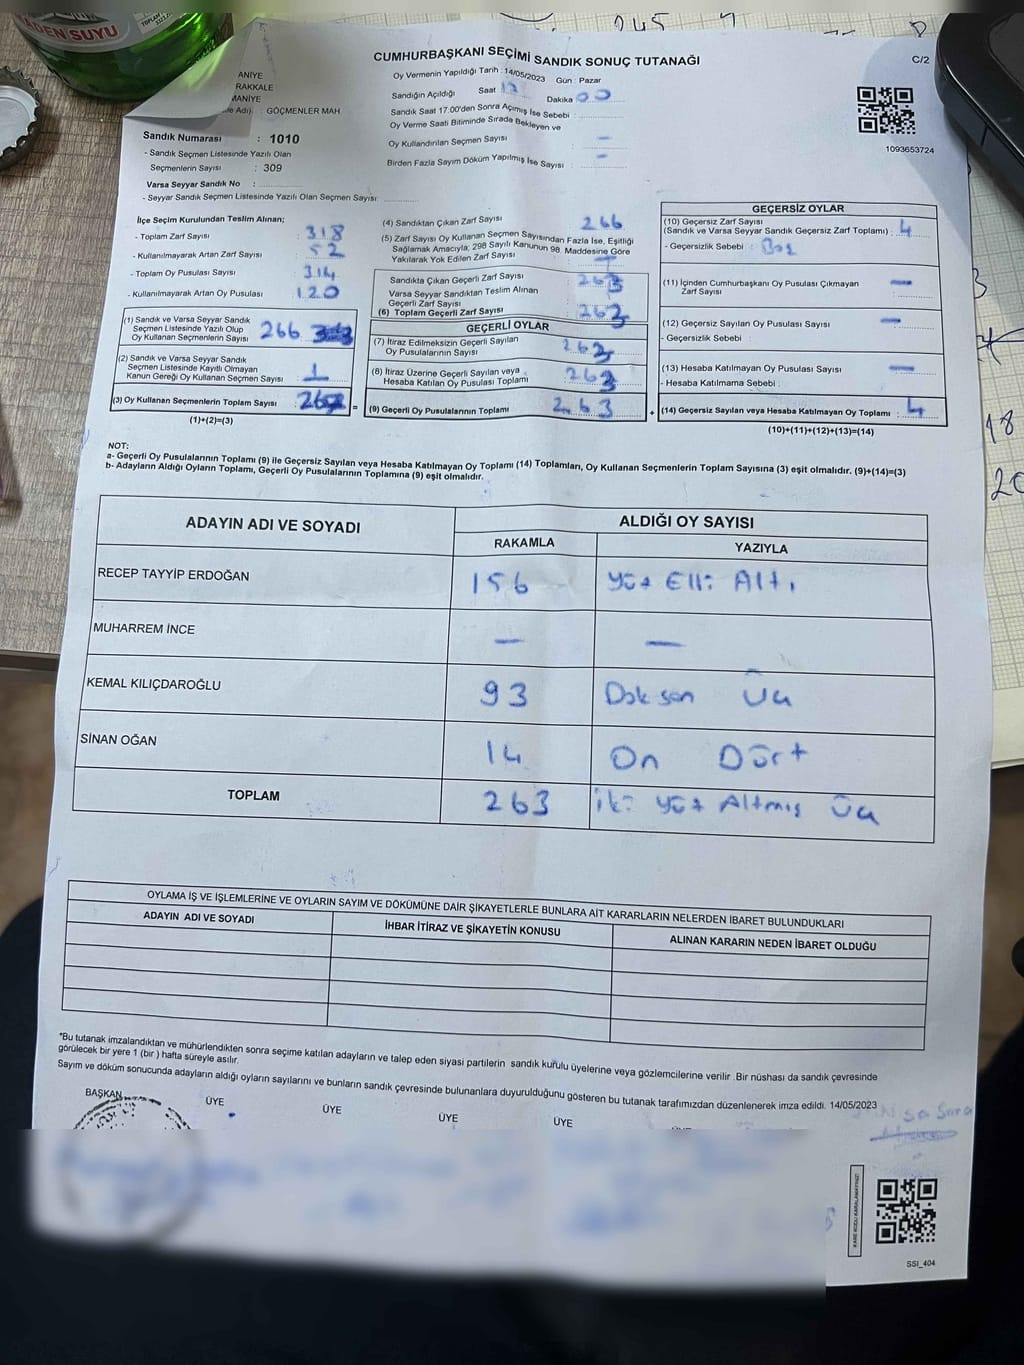 MADEN SUYU
245
CUMHURBAŞKANI SEÇİMİ SANDIK SONUÇ TUTANAĞI
C/2
1093653724
ANİYE
RAKKALE
MANİYE
GÖÇMENLER MAH.
Oy Vermenin Yapıldığı Tarih : 14/05/2023 Gün : Pazar
Sandığın Açıldığı Saat 17 Dakika 00
Sandık Saat 17.00'den Sonra Açımış İse Sebebi :
Oy Verme Saati Bitiminde Sırada Bekleyen ve
Oy Kullandırılan Seçmen Sayısı : —
Birden Fazla Sayım Döküm Yapılmış İse Sayısı : —
Sandık Numarası : 1010
- Sandık Seçmen Listesinde Yazılı Olan
Seçmenlerin Sayısı : 309
Varsa Seyyar Sandık No :
- Seyyar Sandık Seçmen Listesinde Yazılı Olan Seçmen Sayısı :
İlçe Seçim Kurulundan Teslim Alınan;
- Toplam Zarf Sayısı : 318
- Kullanılmayarak Artan Zarf Sayısı : 52
- Toplam Oy Pusulası Sayısı : 314
- Kullanılmayarak Artan Oy Pusulası : 120
(1) Sandık ve Varsa Seyyar Sandık
Seçmen Listesinde Yazılı Olup
Oy Kullanan Seçmenlerin Sayısı : 266
(2) Sandık ve Varsa Seyyar Sandık
Seçmen Listesinde Kayıtlı Olmayan
Kanun Gereği Oy Kullanan Seçmen Sayısı : 1
(3) Oy Kullanan Seçmenlerin Toplam Sayısı : 267
(1)+(2)=(3)
=
(4) Sandıktan Çıkan Zarf Sayısı 266
(5) Zarf Sayısı Oy Kullanan Seçmen Sayısından Fazla İse, Eşitliği
Sağlamak Amacıyla; 298 Sayılı Kanunun 98. Maddesine Göre
Yakılarak Yok Edilen Zarf Sayısı :
Sandıkta Çıkan Geçerli Zarf Sayısı : 263
Varsa Seyyar Sandıktan Teslim Alınan
Geçerli Zarf Sayısı
(6) Toplam Geçerli Zarf Sayısı : 263
GEÇERLİ OYLAR
(7) İtiraz Edilmeksizin Geçerli Sayılan
Oy Pusulalarının Sayısı : 263
(8) İtiraz Üzerine Geçerli Sayılan veya
Hesaba Katılan Oy Pusulası Toplamı : 263
(9) Geçerli Oy Pusulalarının Toplamı 263
+
GEÇERSİZ OYLAR
(10) Geçersiz Zarf Sayısı
(Sandık ve Varsa Seyyar Sandık Geçersiz Zarf Toplamı) : 4
- Geçersizlik Sebebi : Boş
(11) İçinden Cumhurbaşkanı Oy Pusulası Çıkmayan
Zarf Sayısı : —
(12) Geçersiz Sayılan Oy Pusulası Sayısı : —
- Geçersizlik Sebebi :
(13) Hesaba Katılmayan Oy Pusulası Sayısı : —
- Hesaba Katılmama Sebebi :
(14) Geçersiz Sayılan veya Hesaba Katılmayan Oy Toplamı : 4
(10)+(11)+(12)+(13)=(14)
NOT:
a- Geçerli Oy Pusulalarının Toplamı (9) ile Geçersiz Sayılan veya Hesaba Katılmayan Oy Toplamı (14) Toplamları, Oy Kullanan Seçmenlerin Toplam Sayısına (3) eşit olmalıdır. (9)+(14)=(3)
b- Adayların Aldığı Oyların Toplamı, Geçerli Oy Pusulalarının Toplamına (9) eşit olmalıdır.
18
20
ADAYIN ADI VE SOYADI
ALDIĞI OY SAYISI
RAKAMLA YAZIYLA
RECEP TAYYİP ERDOĞAN 156 Yüz Elli Altı
MUHARREM İNCE — —
KEMAL KILIÇDAROĞLU 93 Doksan Üç
SİNAN OĞAN 14 On Dört
TOPLAM 263 iki yüz Altmış Üç
OYLAMA İŞ VE İŞLEMLERİNE VE OYLARIN SAYIM VE DÖKÜMÜNE DAİR ŞİKAYETLERLE BUNLARA AİT KARARLARIN NELERDEN İBARET BULUNDUKLARI
ADAYIN ADI VE SOYADI İHBAR İTİRAZ VE ŞİKAYETİN KONUSU ALINAN KARARIN NEDEN İBARET OLDUĞU
*Bu tutanak imzalandıktan ve mühürlendikten sonra seçime katılan adayların ve talep eden siyasi partilerin sandık kurulu üyelerine veya gözlemcilerine verilir .Bir nüshası da sandık çevresinde
görülecek bir yere 1 (bir ) hafta süreyle asılır.
Sayım ve döküm sonucunda adayların aldığı oyların sayılarını ve bunların sandık çevresinde bulunanlara duyurulduğunu gösteren bu tutanak tarafımızdan düzenlenerek imza edildi. 14/05/2023
BAŞKAN ÜYE ÜYE ÜYE ÜYE
SSI_404